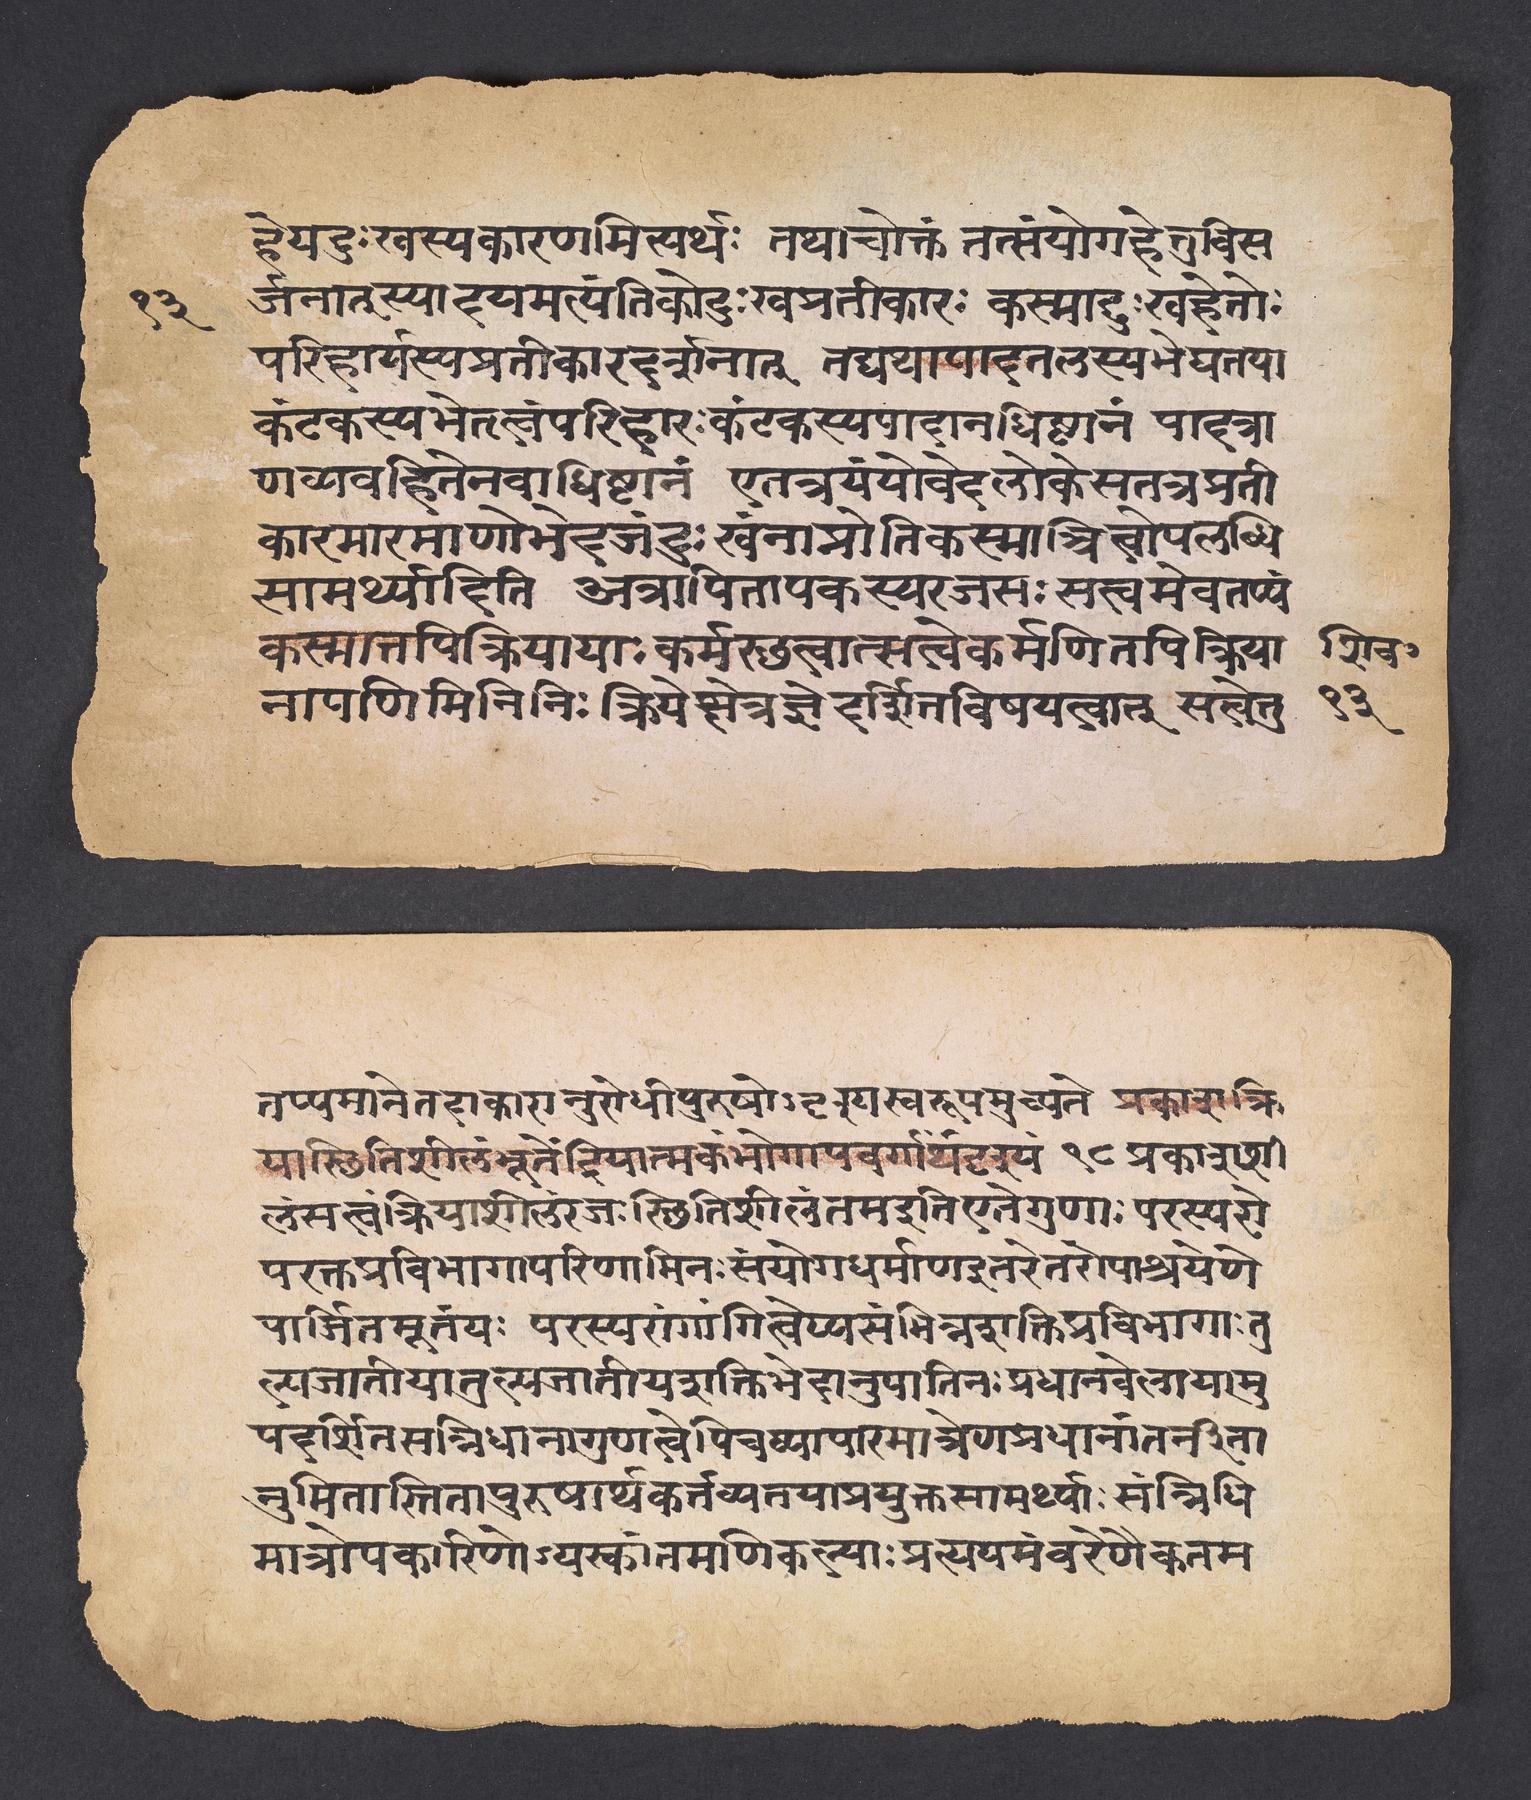 हेयदुःखस्यकारणमित्यर्थः तथाचोक्तं तत्संयोगहेतुविस
१३
र्जनातुस्याद्दयमत्यंतिकोदुःखप्रतीकारः कस्मादुःखहेतोः
परिहार्यस्यप्रतीकारदर्शनात् तद्यथापादतलस्यभेद्यतया
कंटकस्यभेतत्वंपरिहारःकंटकस्यपादानधिष्टानं पादत्रा
णव्यवहितेनवाधिष्टानं एतत्रयंयोवेदलोकेसतत्रप्रती
कारमारमाणोभेदजंदुःखंनाप्नोतिकस्मात्रित्वोपलब्धि
सामर्थ्यादिति अत्रापितापकस्यरजसःसत्त्वमेवतप्यं
कस्मात्तपिक्रियायाःकर्मस्छत्वात्सत्वेकर्मणितपिक्रिया
शिव॰
नापणिमिनिनिःक्रियेक्षेत्रज्ञेदर्शितविषयत्वात् सत्वेतु
१३
तप्यमानेतदाकारानुरोधीपुरुषोऽदृश्यस्वरूपमुच्यते प्रकाशक्रि
यास्छितिशीलंभूतेंद्रियात्मकंभोगापवर्गार्थंदृश्यं १८ प्रकाशशी
लंसत्वंक्रियाशीलंरजःस्छितिशीलंतमइतिएतेगुणाःपरस्परो
परक्तप्रविभागापरिणामिनःसंयोगधर्माणइतरेतरोपाश्रयेणे
पार्जितमूर्तयः परस्परांगांगित्वेप्यसंभिन्नशक्तिप्रविभागाःतु
ल्यजातीयातुल्यजातीयशक्तिभेदानुपातिनःप्रधानवेलायामु
पदर्शितसन्निधानागुणत्वेपिचव्यापारमात्रेणप्रधानांतर्नीता
नुमितास्तितापुरुषार्थकर्त्तव्यतयाप्रयुक्तसामर्थ्याःसंन्निधि
मात्रोपकारिणोऽयस्कांतमणिकल्पाःप्रत्ययमंवरेणैकतम